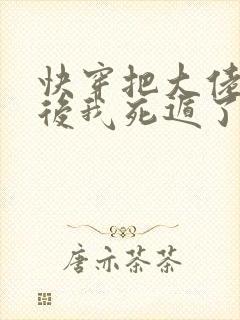 快穿把大佬
後我死遁了
唐亦茶茶